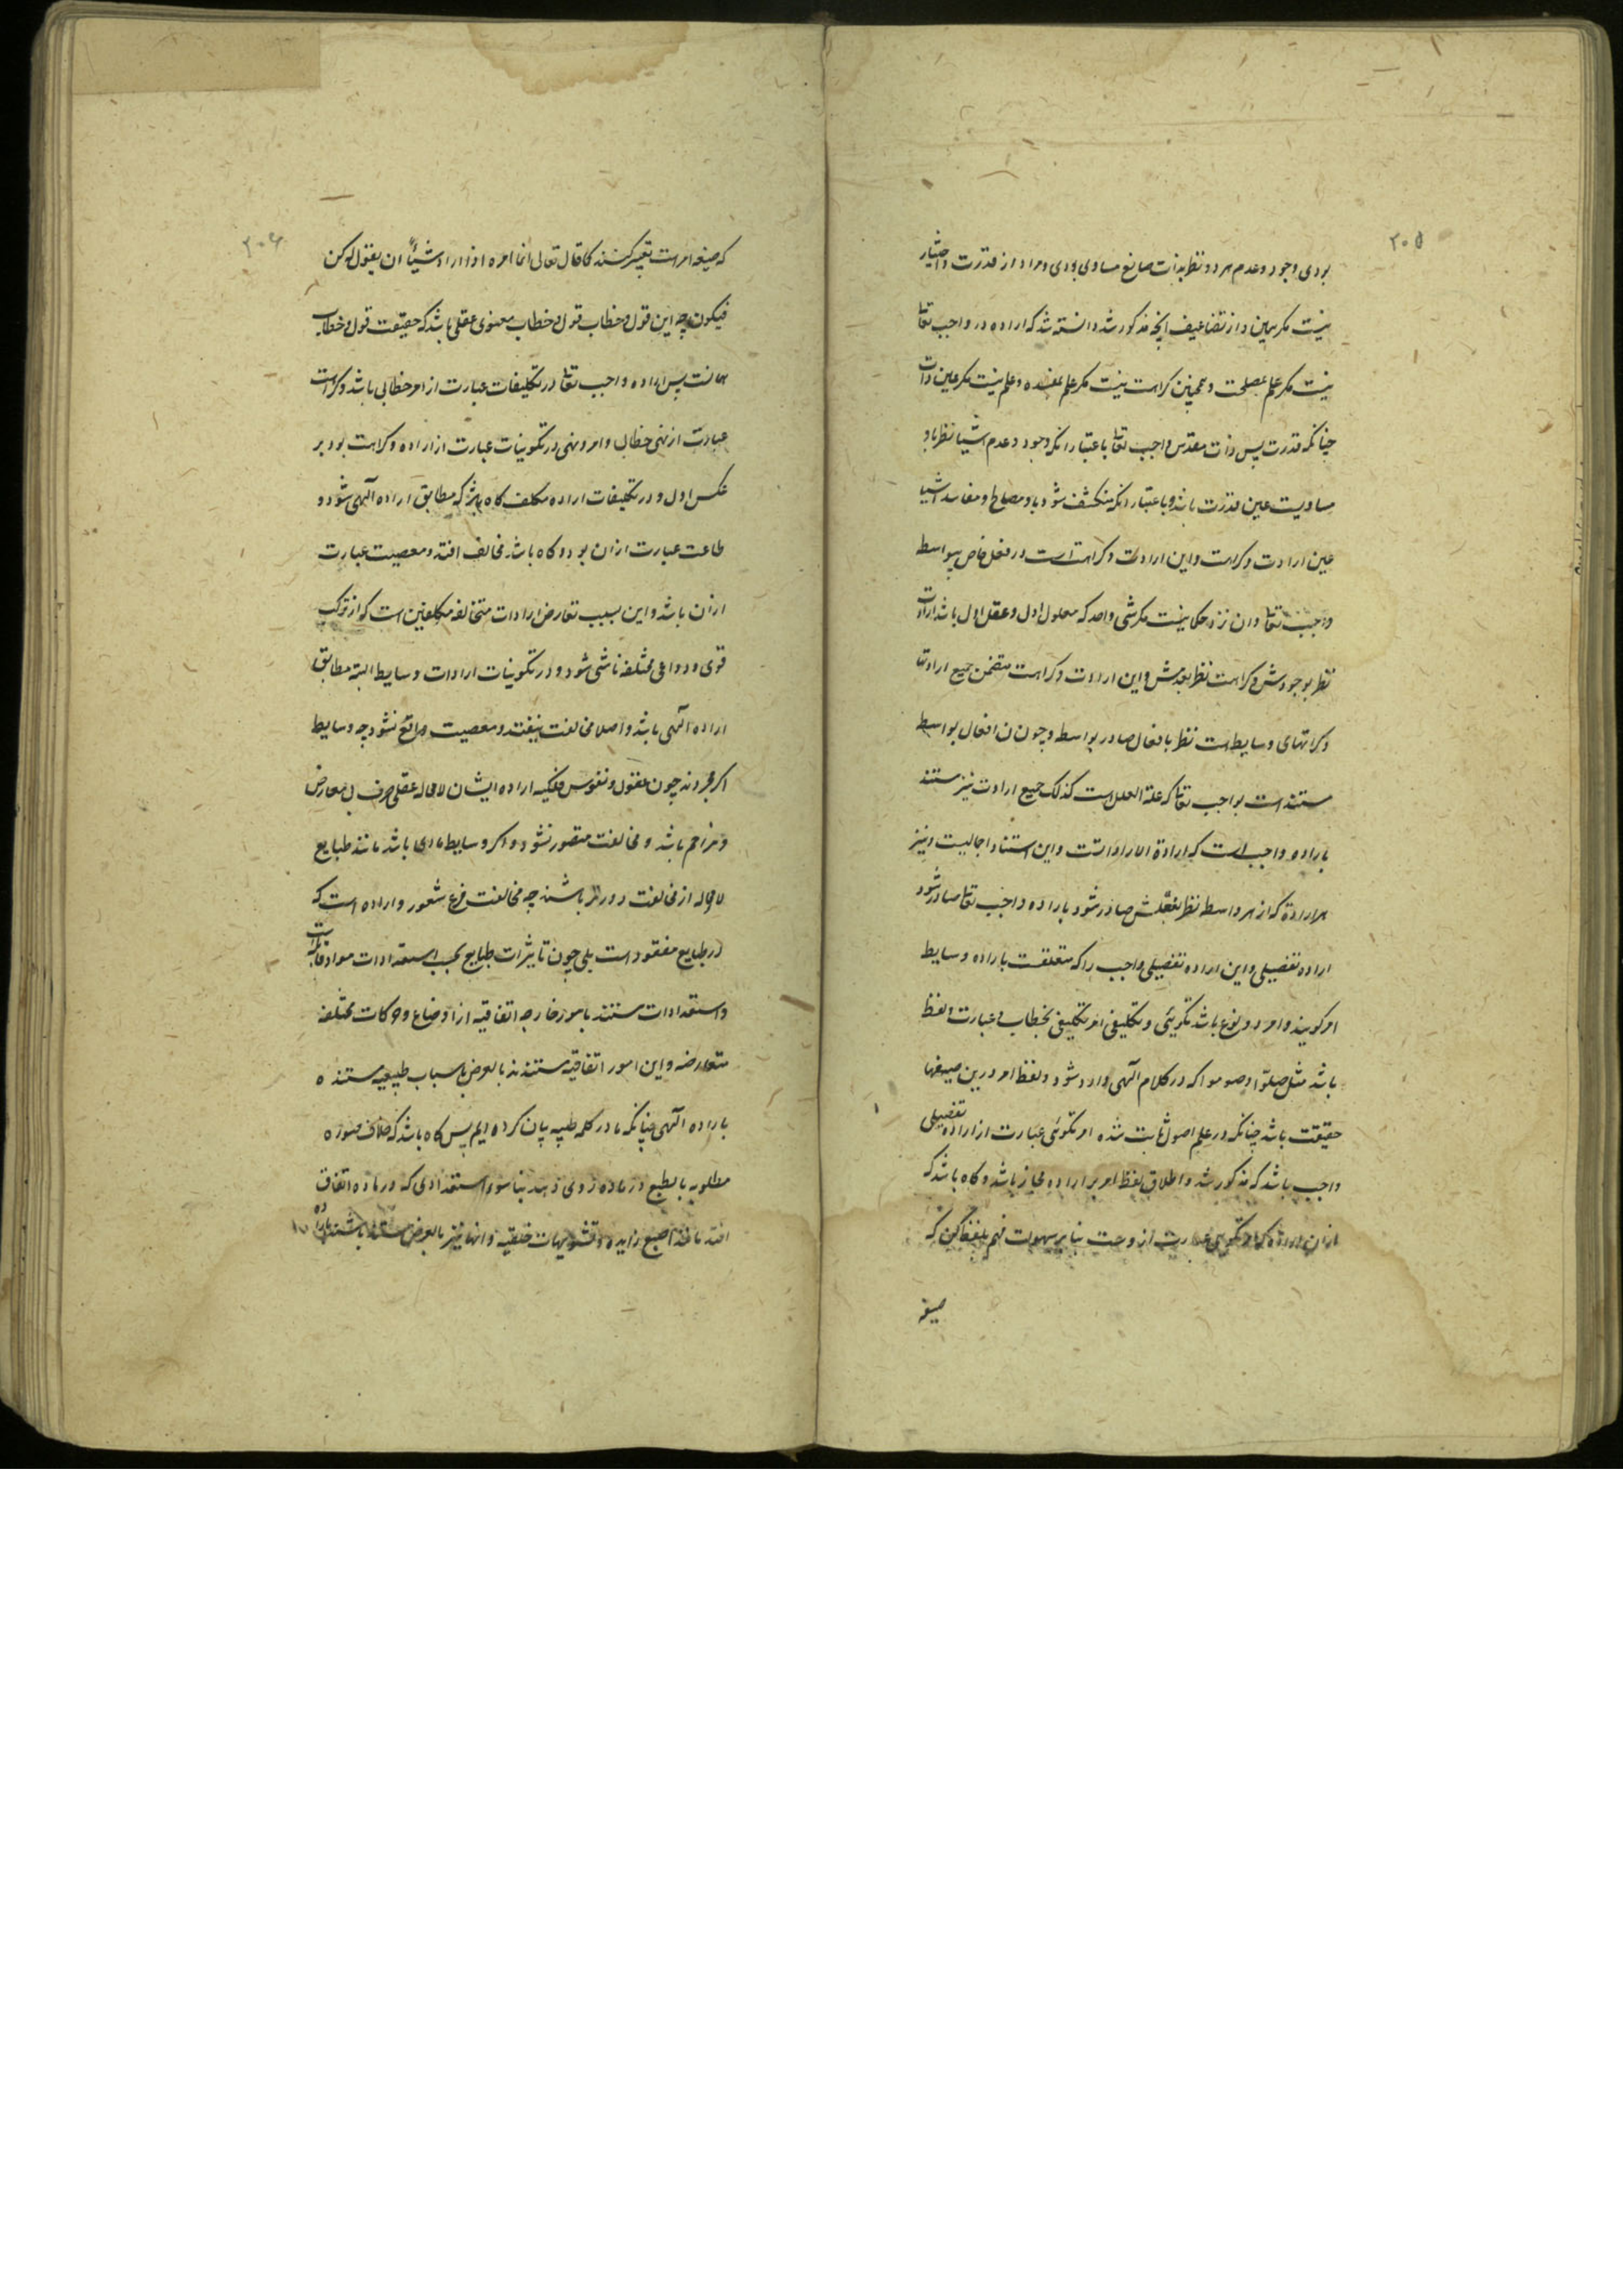 ۲۰۵
بودی وجود و عدم هر دو نظر بذات صانع مساوی بودی و مراد از قدرت و اختیار
نیست مکر همین و از تضاعیف انچه مذکور شد دانسته شد که اراده در واجب تعالی
نیست مکر علم بمصلحت و همچنین کراهت نیست مکر علم بمفسده و علم نیست مکر عین ذات
چنانکه قدرت پس ذات مقدس واجب تعالی باعتبار انکه وجود و عدم اشیا نظر باو
مساویست عین قدرت باشد و باعتبار انکه منکشف شود باو مصالح و مفاسد اشیا
عین ارادت و کراهت و این ارادت و کراهت است در فعل خاص بیواسطه
واجب تعالی و ان نزد حکما نیست مکر شی واحد که معلول اول و عقل اول باشد ارادت
نظر بوجودش و کراهت نظر بعدمش و این ارادت و کراهت متضمن جمیع ارادتها
و کراهتهای وسایط است نظر بافعال صادر بواسطه و چون ان افعال بواسطه
مستند است بواجب تعالی که علة العلل است کذلک جمیع ارادت نیز مستند
باراده واجب است که ارادة الاراداتست و این استناد اجمالیست و نیز
هر ارادة که از هر واسطه نظر بفعلش صادر شود باراده واجب تعالی صادر شود
اراده تفصیلی و این اراده تفصیلی واجب را که متعلقست باراده وسایط
امر کویند و امر دو نوع باشد تکوینی و تکلیفی امر تکلیفی بخطاب و عبارت و لفظ
باشد مثل صلوا و صوموا که در کلام الهی وارد شود و لفظ امر درین صیغها
حقیقت باشد چنانکه در علم اصول ثابت شده امر تکوینی عبارت از اراده تفصیلی
واجب باشد که مذکور شد و اطلاق لفظ امر بر اراده مجاز باشد و کاه باشد که
ازان اراده که امر تکوینی عبارت از وست بنا بر سهولت فهم بلفظ کن که
صیغه
۲۰۶
که صیغه امر است تعبیر کنند کما قال تعالی انما امره اذا اراد شیئاً ان یقول له کن
فیکون چه این قول و خطاب قول و خطاب معنوی عقلی باشد که حقیقت قول و خطاب
همانست پس اراده واجب تعالی در تکلیفات عبارت از امر خطابی باشد و کراهت
عبارت از نهی خطابی و امر و نهی در تکوینیات عبارت از اراده و کراهت بود بر
عکس اول و در تکلیفات اراده مکلف کاه باشد که مطابق اراده الهی شود و
طاعت عبارت ازان بود و کاه باشد مخالف افتد و معصیت عبارت
ازان باشد و این بسبب تعارض ارادات متخالفه مکلفین است که از ترکب
قوی و دواعی مختلفه ناشی شود و در تکوینیات ارادات وسایط البته مطابق
اراده الهی باشد و اصلا مخالفت نیفتد و معصیت واقع نشود چه وسایط
اکر مجردند چون عقول و نفوس فلکیه اراده ایشان لامحاله عقلی صرف بی معارض
و مزاحم باشد و مخالفت متصور نشود و اکر وسایط مادی باشد مانند طبایع
لامحاله از مخالفت دورتر باشند چه مخالفت فرع شعور و اراده است که
در طبایع مفقود است بلی چون تاثیرات طبایع بحسب استعدادات مواد قابله است
و استعدادات مستند بامور خارجه اتفاقیه از اوضاع و حرکات مختلفه
متعارضه و این امور اتفاقیه مستندند بالعرض باسباب طبیعیه مستنده
باراده الهی چنانکه ما در کلمه طیبه بیان کرده ایم پس کاه باشد که خلاف صورة
مطلوبه بالطبع در ماده روی دهد بنا بسوء استعدادی که در ماده اتفاق
افتد مانند اصبع زایده و تشویهات خلقیه و انها نیز بالعرض مستند باشند باراده